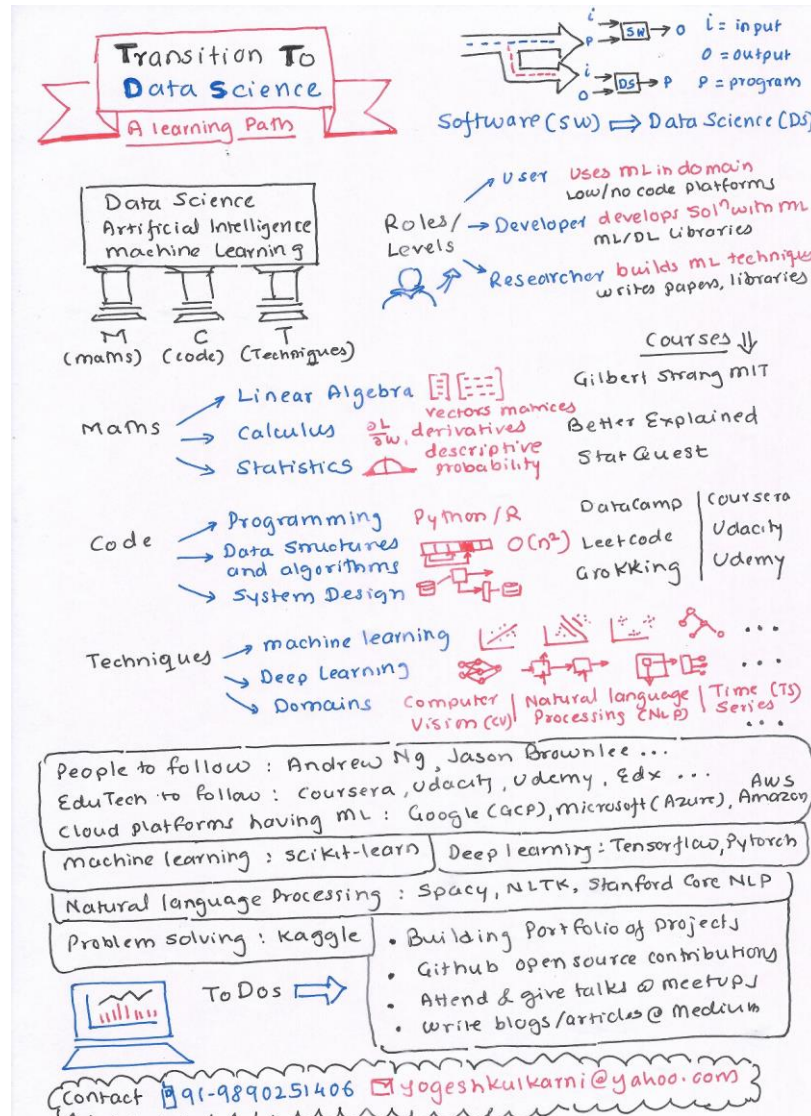 Transition To
Data Science
A learning Path
i
P
SW
O
i = input
O = output
i
O
DS
P
P = program
Software (SW) ⇒ Data Science (DS)
Data Science
Artificial Intelligence
machine Learning
M
C
T
(maths)
(code)
(Techniques)
Roles/
Levels
User
uses ML in domain
Low/no code platforms
Developer
develops Solⁿ with ML
ML/DL Libraries
Researcher
builds ML techniques
writes papers, libraries
Courses
Maths
Linear Algebra
vectors matrices
Calculus
∂L
∂W,
derivatives
Statistics
descriptive
probability
Gilbert Strang MIT
Better Explained
StatQuest
Code
Programming
Python/R
Data structures
and algorithms
O(n²)
System Design
DataCamp
Leetcode
Grokking
Coursera
Udacity
Udemy
Techniques
machine learning
...
Deep Learning
...
Domains
Computer
Vision (CV)
Natural language
Processing (NLP)
Time (TS)
Series
...
People to follow : Andrew Ng, Jason Brownlee ...
EduTech to follow : Coursera, Udacity, Udemy, Edx ...
Cloud platforms having ML : Google (GCP), Microsoft (Azure), AWS Amazon
machine learning : scikit-learn
Deep learning : Tensorflow, Pytorch
Natural language Processing : Spacy, NLTK, Stanford Core NLP
Problem solving : Kaggle
ToDos
• Building Portfolio of projects
• Github open source contributions
• Attend & give talks @ meetups
• write blogs/articles @ Medium
Contact 91-9890251406 yogeshkulkarni@yahoo.com